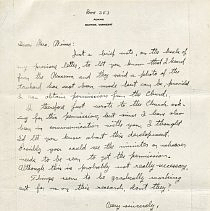 Box 353
Dear Mrs. :
Just a brief note, on the back of
my previous letter, to let you know that I heard
from the Museum and they said a photo of the
had not been made but can be, provided
I obtain permission from the Church.
I therefore just wrote to the Church ask-
ing for this permission, but since I have also
been in communication with you, I thought
I'd let you know about this development.
Possibly you could see the minister or whoever
needs to be seen to get the permission.
Although this is probably not really necessary,
Things seem to be gradually working
out for me on this research, don't they?
Very sincerely,